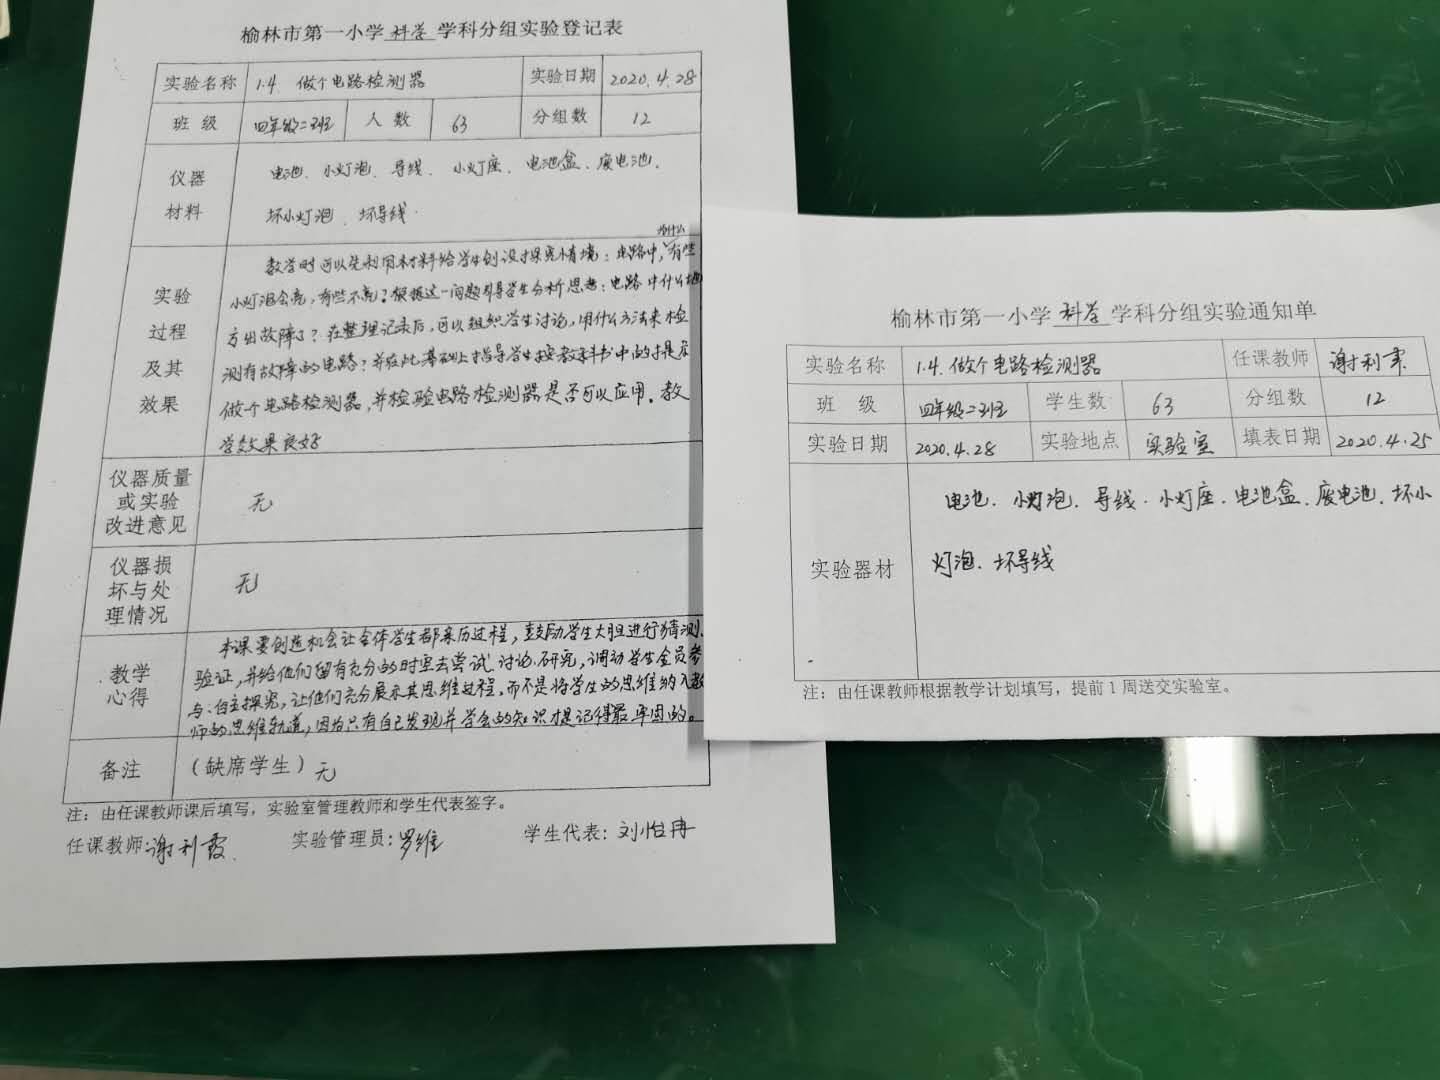 榆林市第一小学 科学 学科分组实验登记表
实验名称 1.4. 做个电路检测器 实验日期 2020.4.28
班 级 四年级二班 人 数 63 分组数 12
仪器 电池、小灯泡、导线、小灯座、电池盒、废电池、
材料 坏小灯泡、坏导线.
为什么
教学时可以先利用材料给学生创设探究情境：电路中，有些
实验 小灯泡会亮，有些不亮？根据这一问题引导学生分析思考：电路中什么地
过程 方出故障了？在整理记录后，可以组织学生讨论，用什么方法来检
及其 测有故障的电路？并在此基础上指导学生按教科书中的提示
效果 做个电路检测器，并检验电路检测器是否可以应用。教
学效果良好
仪器质量
或实验 无
改进意见
仪器损
坏与处 无
理情况
本课要创造机会让全体学生都亲历过程，鼓励学生大胆进行猜测、
教学 验证，并给他们留有充分的时空去尝试、讨论、研究，调动学生全员参
心得 与、自主探究，让他们充分展示其思维过程，而不是将学生的思维纳入教
师的思维轨道，因为只有自己发现并学会的知识才是记得最牢固的。
备注 （缺席学生）无
注：由任课教师课后填写，实验室管理教师和学生代表签字。
任课教师：谢利霞 实验管理员：罗维 学生代表：刘怡冉
榆林市第一小学 科学 学科分组实验通知单
实验名称 1.4.做个电路检测器 任课教师 谢利霞
班 级 四年级二班 学生数 63 分组数 12
实验日期 2020.4.28 实验地点 实验室 填表日期 2020.4.25
电池、小灯泡、导线、小灯座、电池盒、废电池、坏小
实验器材 灯泡、坏导线
注：由任课教师根据教学计划填写，提前1周送交实验室。